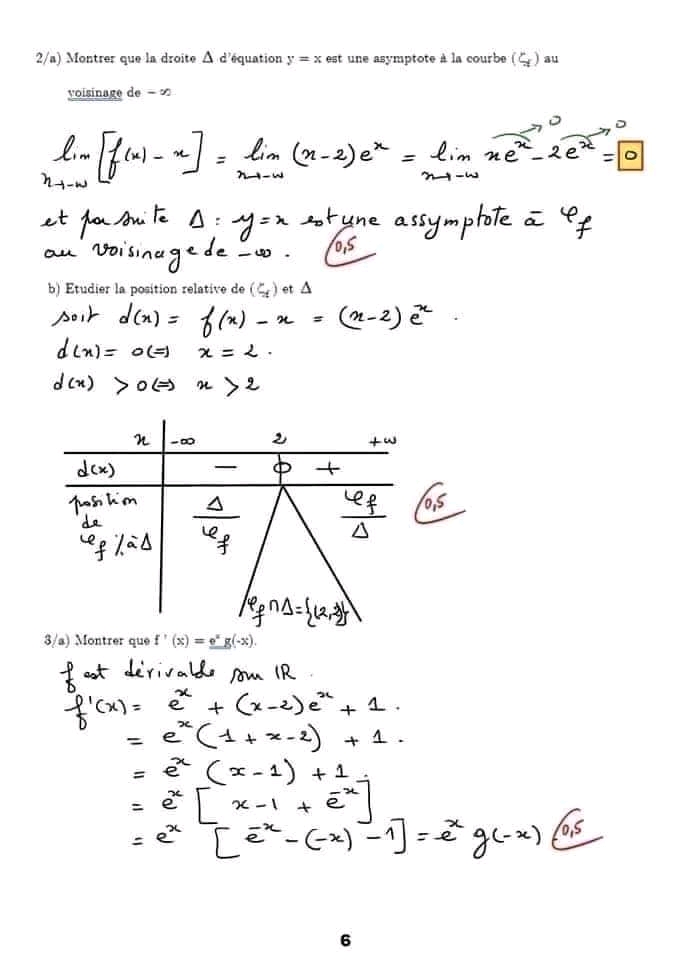 2/a) Montrer que la droite Δ d'équation y = x est une asymptote à la courbe (ζf) au
voisinage de − ∞
lim x→-∞ [f(x) - x] = lim x→-∞ (x-2)e^x = lim x→-∞ xe^x → 0 - 2e^x → 0 = 0
et par suite Δ : y=x est une assymptote à φf
au voisinage de -∞ . 0,5
b) Etudier la position relative de (ζf) et Δ
soit d(x) = f(x) - x = (x-2) e^x .
d(x) = 0 ⇔ x = 2 .
d(x) > 0 ⇔ x > 2
x -∞ 2 +∞
d(x) - 0 +
position de φf %à Δ Δ/φf φf/Δ 0,5
φf∩Δ={(2,2)}
3/a) Montrer que f ' (x) = e^x g(-x).
f est dérivable sur IR .
f'(x) = e^x + (x-2)e^x + 1 .
= e^x (1 + x - 2) + 1 .
= e^x (x-1) + 1 .
= e^x [ x-1 + e^-x ]
= e^x [ e^-x - (-x) - 1] = e^x g(-x) 0,5
6